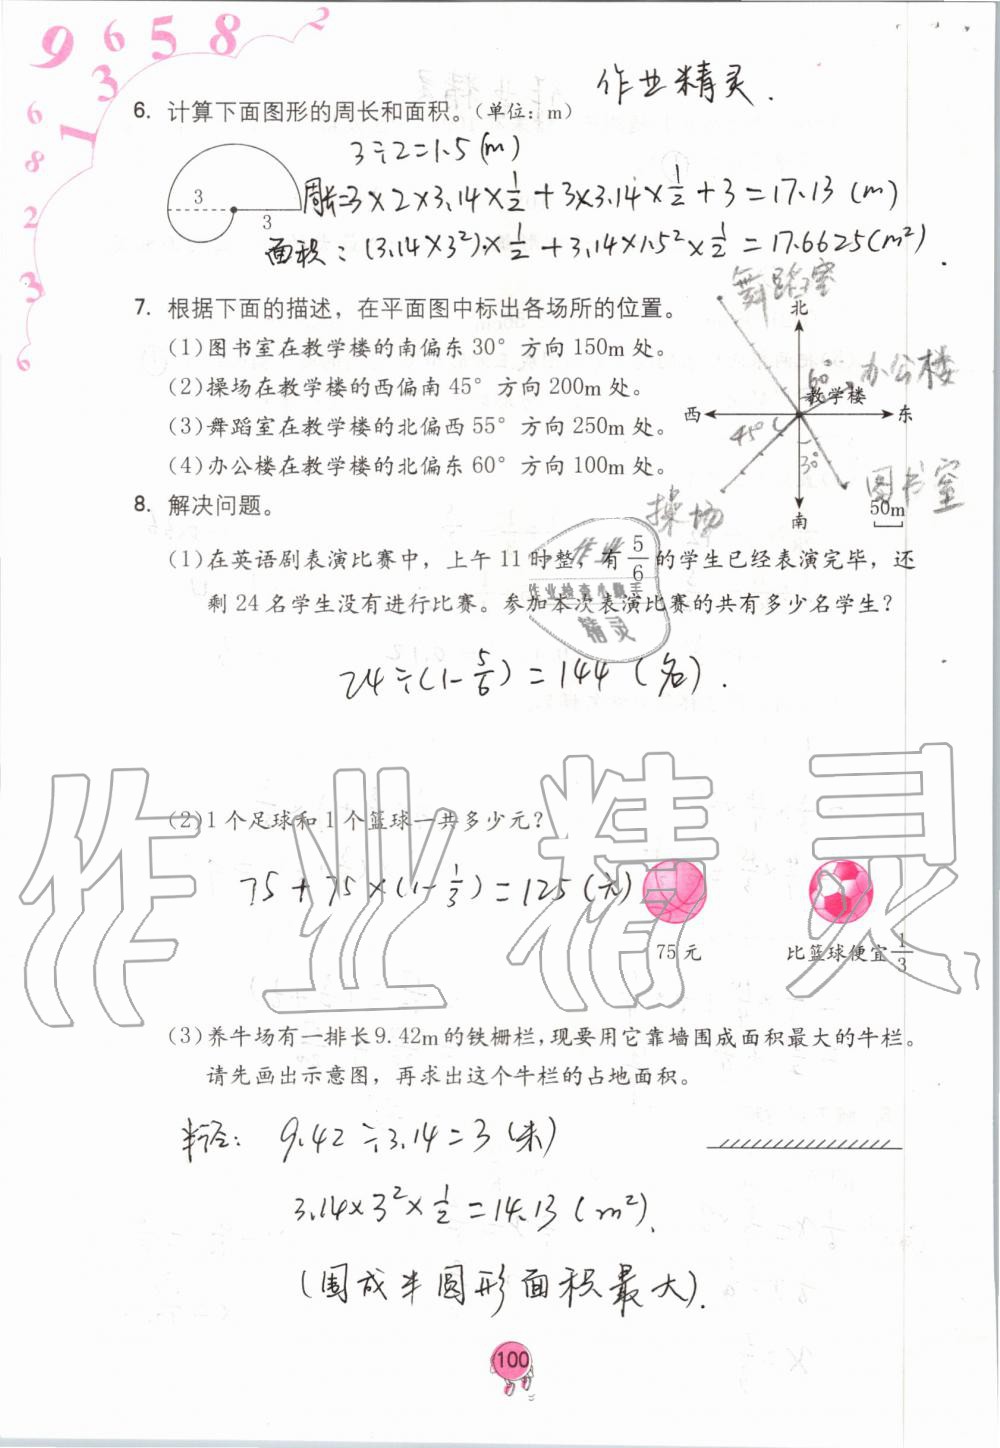 9 6 5 8 2
1 3
6
8
2
3
6
作业精灵.
6. 计算下面图形的周长和面积。(单位：m)
3÷2=1.5(m)
3
3
周长=3×2×3.14×1/2+3×3.14×1/2+3=17.13(m)
面积：(3.14×3²)×1/2+3.14×1.5²×1/2=17.6625(m²).
7. 根据下面的描述，在平面图中标出各场所的位置。
(1)图书室在教学楼的南偏东30°方向150m处。
(2)操场在教学楼的西偏南45°方向200m处。
(3)舞蹈室在教学楼的北偏西55°方向250m处。
(4)办公楼在教学楼的北偏东60°方向100m处。
舞蹈室
北
60°
办公楼
教学楼
西
东
45°
30°
图书室
操场
南
50m
8. 解决问题。
(1)在英语剧表演比赛中，上午11时整，有5/6的学生已经表演完毕，还
剩24名学生没有进行比赛。参加本次表演比赛的共有多少名学生？
作业
作业检查小助手
精灵
24÷(1-5/6)=144(名).
(2)1个足球和1个篮球一共多少元？
75+75×(1-1/3)=125(元)
75元
比篮球便宜1/3
作业精灵
(3)养牛场有一排长9.42m的铁栅栏，现要用它靠墙围成面积最大的牛栏。
请先画出示意图，再求出这个牛栏的占地面积。
半径：9.42÷3.14=3(米)
3.14×3²×1/2=14.13(m²).
(围成半圆形面积最大).
100